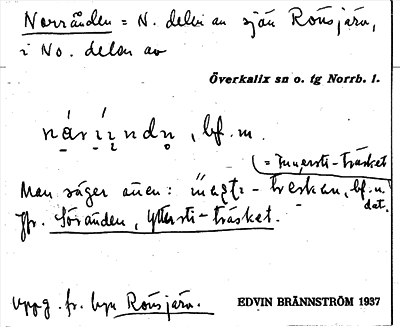 Norränden = N. delen av sjön Rousjärv,
i No. delen av
Överkalix sn o. tg Norrb. l.
bf. m.
= Innersti-träsket
Man säger även: bf. n.
dat.
Jfr. Söränden, Yttersti-träsket.
Uppg. fr. byn Rousjärv. EDVIN BRÄNNSTRÖM 1937